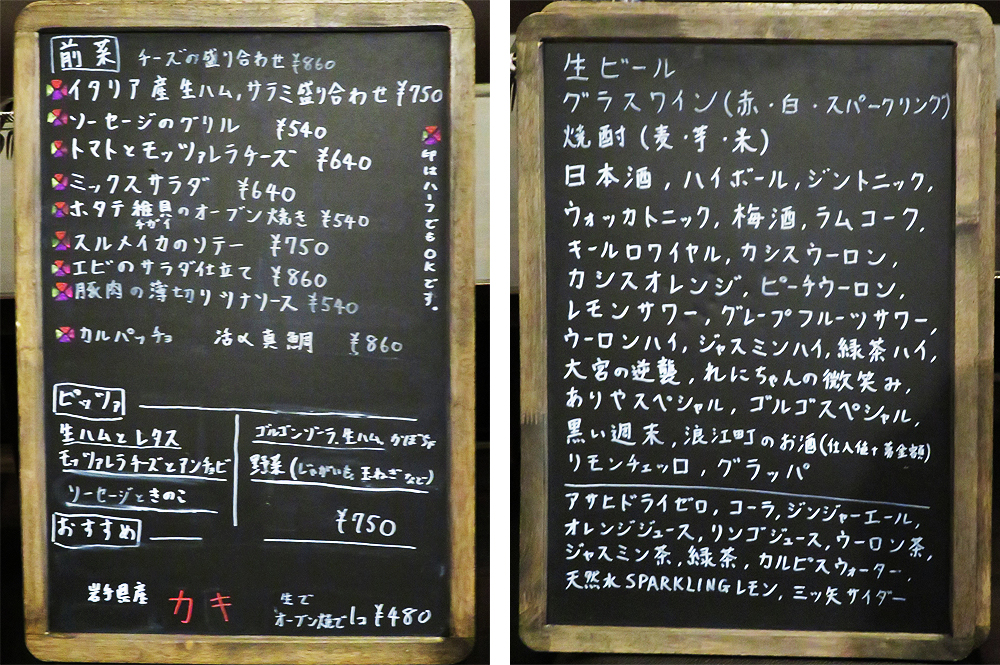 前菜 チーズの盛り合わせ ¥860
イタリア産生ハム,サラミ盛り合わせ ¥750
ソーセージのグリル ¥540
トマトとモッツァレラチーズ ¥640
ミックスサラダ ¥640
ホタテ稚貝のオーブン焼き ¥540
チガイ
スルメイカのソテー ¥750
エビのサラダ仕立て ¥860
豚肉の薄切りツナソース ¥540
カルパッチョ 活〆真鯛 ¥860
印はハーフでもOKです。
ピッツァ
生ハムとレタス
モッツァレラチーズとアンチョビ
ソーセージときのこ
ゴルゴンゾーラ,生ハム,かぼちゃ
野菜(じゃがいも,玉ねぎなど)
¥750
おすすめ
岩手県産 カキ 生で
オーブン焼で1コ ¥480
生ビール
グラスワイン(赤・白・スパークリング)
焼酎(麦・芋・米)
日本酒,ハイボール,ジントニック,
ウォッカトニック,梅酒,ラムコーク,
キールロワイヤル,カシスウーロン,
カシスオレンジ,ピーチウーロン,
レモンサワー,グレープフルーツサワー,
ウーロンハイ,ジャスミンハイ,緑茶ハイ,
大宮の逆襲,れにちゃんの微笑み,
ありやスペシャル,ゴルゴスペシャル,
黒い週末,浪江町のお酒(仕入値+募金額)
リモンチェッロ,グラッパ
アサヒドライゼロ,コーラ,ジンジャーエール,
オレンジジュース,リンゴジュース,ウーロン茶,
ジャスミン茶,緑茶,カルピスウォーター,
天然水SPARKLINGレモン,三ッ矢サイダー